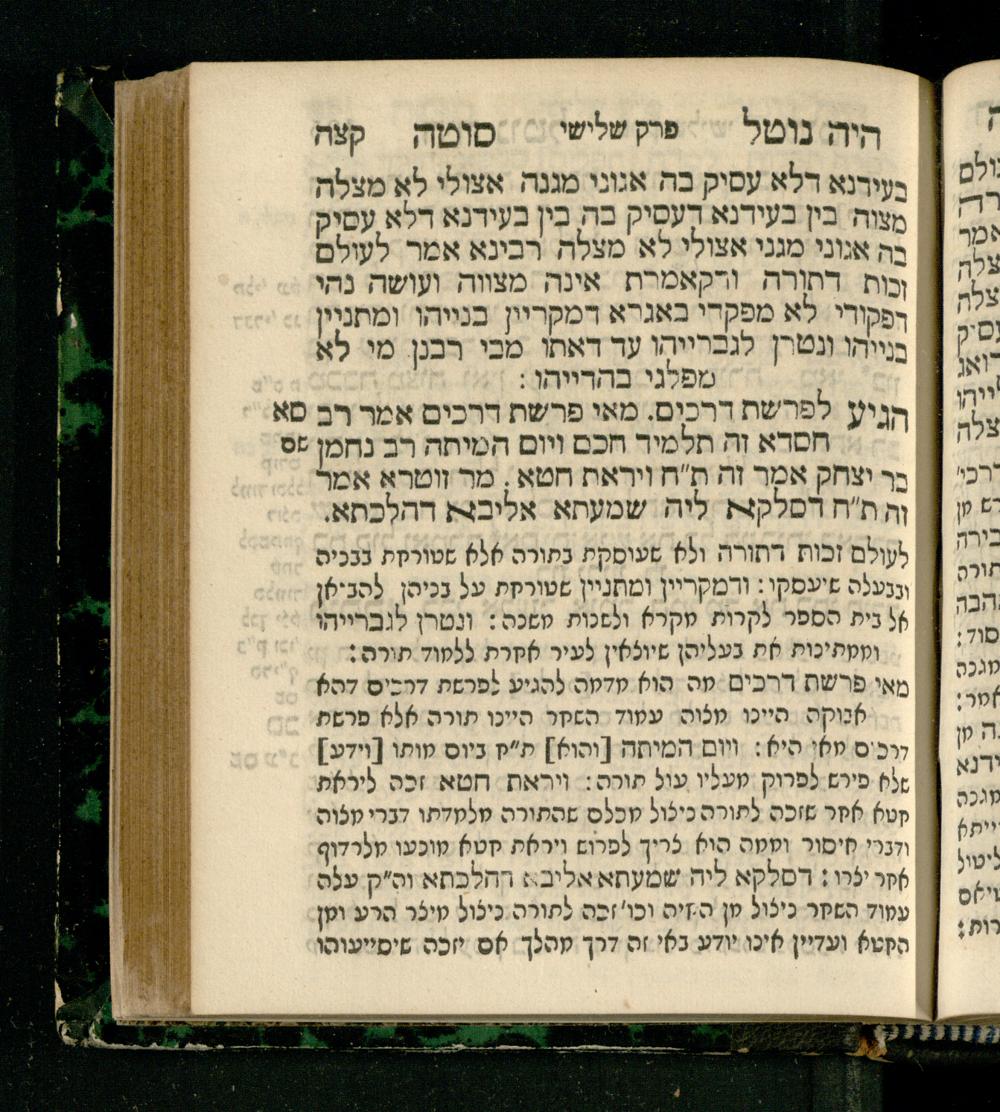 היה נוטל פרק שלישי סוטה קצה
בעידנא דלא עסיק בה אגוני מגנה אצולי לא מצלה
מצוה בין בעידנא דעסיק בה בין בעידנא דלא עסיק
בה אגוני מגני אצולי לא מצלה רבינא אמר לעולם
זכות דתורה ודקאמרת אינה מצווה ועושה נהי
דפקודי לא מפקדי באגרא דמקריין בנייהו ומתניין
בנייהו ונטרן לגברייהו עד דאתו מבי רבנן מי לא
מפלגי בהדייהו:
הגיע לפרשת דרכים. מאי פרשת דרכים אמר רב סא
חסדא זה תלמיד חכם ויום המיתה רב נחמן שם
בר יצחק אמר זה ת״ח ויראת חטא. מר זוטרא אמר
זה ת״ח דסלקא ליה שמעתא אליבא דהלכתא.
לעולם זכות דתורה ולא שעוסקת בתורה אלא שטורחת בבניה
ובבעלה שיעסקו: ודמקריין ומתניין שטורחת על בניהן להביאן
אל בית הספר לקרות מקרא ולשנות משנה: ונטרן לגברייהו
וממתינות את בעליהן שיוצאין לעיר אחרת ללמוד תורה:
מאי פרשת דרכים מה הוא מדמה להגיע לפרשת דרכים דהא
אבוקה היינו מצוה עמוד השחר היינו תורה אלא פרשת
דרכים מאי היא: ויום המיתה [והוא] ת״ח ביום מותו [וידע]
שלא פירש לפרוק מעליו עול תורה: ויראת חטא זכה ליראת
חטא אחר שזכה לתורה ניצול מכלם שהתורה מלמדתו דברי מצוה
ודברי איסור וממה הוא צריך לפרוש ויראת חטא מונעו מלרדוף
אחר יצרו: דסלקא ליה שמעתא אליבא דהלכתא וה״ק עלה
עמוד השחר ניצול מן החיה וכו׳ זכה לתורה ניצול מיצר הרע ומן
החטא ועדיין אינו יודע באי זה דרך מהלך אם יזכה שיסייעוהו